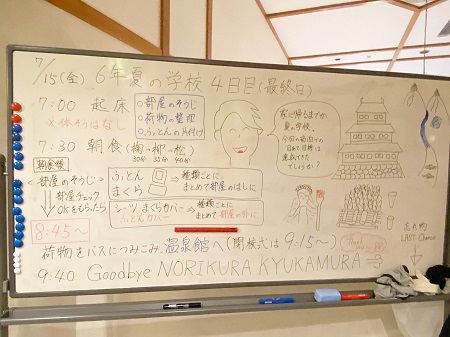 7/15(金) 6年夏の学校 4日目(最終日)
7:00 起床
○部屋のそうじ
○荷物の整理
○ふとんの片付け
※体そうはなし
7:30 朝食(梅→柳→松)
30分 35分 40分
家に帰るまでが
夏の学校。
今回の宿泊での
目標は
達成できた
でしょうか?
朝食後
部屋のそうじ
ふとん
まくら
種類ごとに
まとめて部屋のはしに
部屋チェック
OKをもらったら
シーツ/まくらカバー
ふとんカバー
種類ごとに
まとめて部屋の外に
8:45~
忘れ物
LAST Chance
荷物をバスにつみこみ、温泉館へ(閉校式は9:15~)
9:40 Goodbye NORIKURA KYUKAMURA⇒